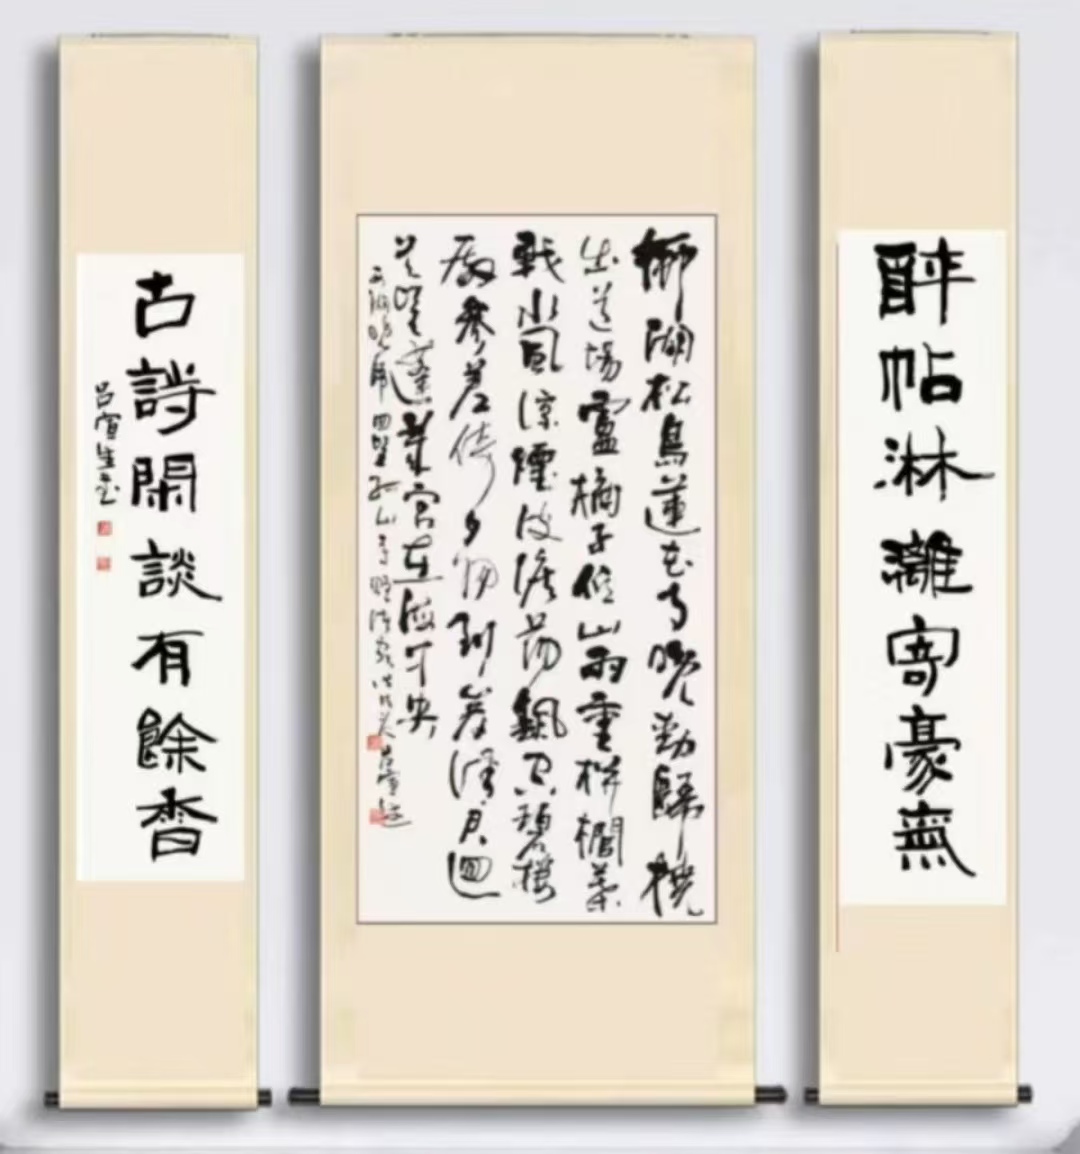 醉帖淋灕寄豪無
柳湖松島蓮花寺晚動歸橈
出道場盧橘子低山雨重栟櫚葉
戰水風涼煙波澹蕩飄空碧樓
殿參差倚夕陽到岸請君迴
首望蓬萊宮在海中央
西湖晚歸回望孤山寺贈諸客
古詩閑談有餘香